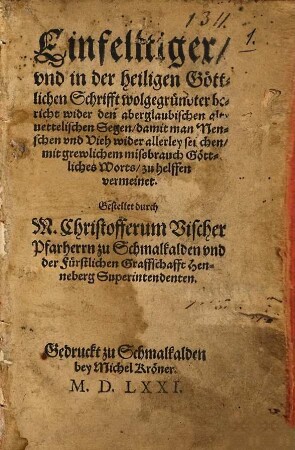 1311.
1.
Einfeltiger/
vnd in der heiligen Gött-
lichen Schrifft wolgegründter be-
richt wider den aberglaubischen
Segen/ damit man Men-
schen vnd Vieh wider allerley
mit grewlichem misbrauch Gött-
liches Worts/ zu helffen
vermeinet.
Gestellet durch
M. Christofferum Vischer
Pfarherrn zu Schmalkalden vnd
der Fürstlichen Graffschafft Hen-
neberg Superintendenten.
Gedruckt zu Schmalkalden
bey Michel Kröner.
M. D. LXXI.